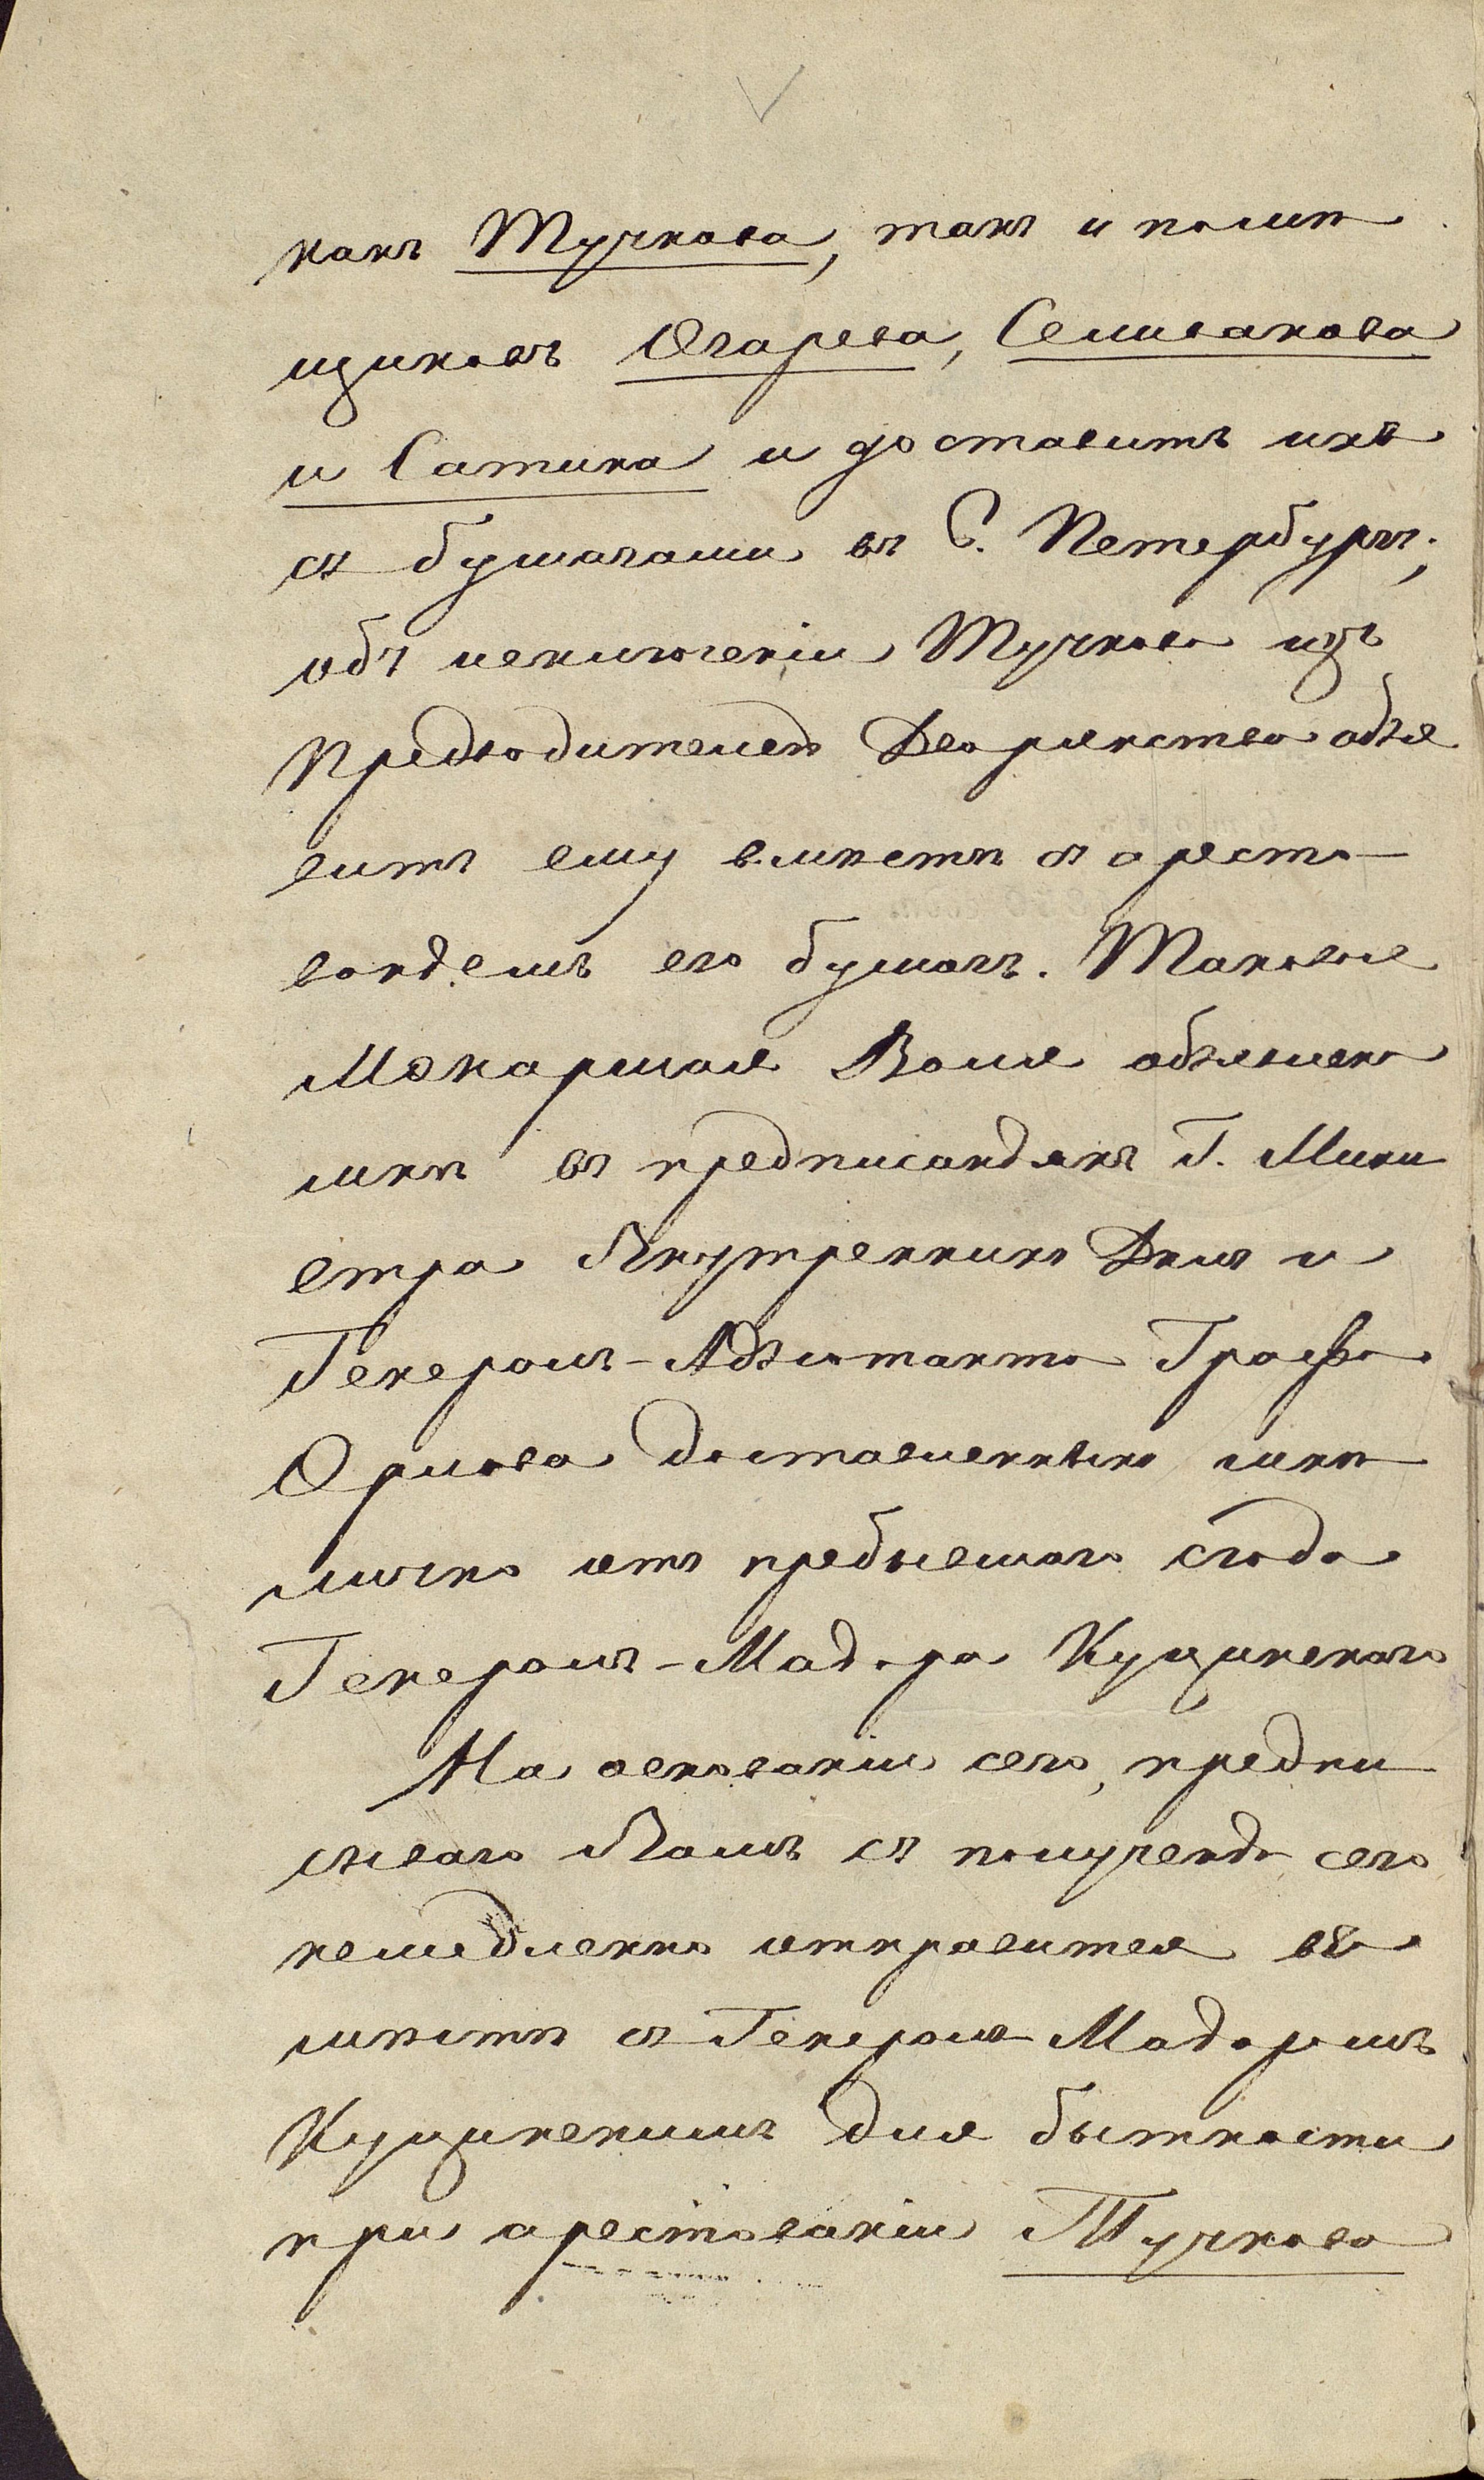 какъ Тучкова, такъ и помѣ
щиковъ Огарева, Селиванова
и Сатина и доставить ихъ
съ бумагами въ С. Петербургъ;
объ исключеніи Тучкова изъ
Предводителей Дворянства объя
вить ему вмѣстѣ съ аресто-
ваніемъ его бумагъ. Таковая
Монаршая Воля объявлена
мнѣ въ предписаніяхъ Г. Мини
стра Внутреннихъ Дѣлъ и
Генералъ-Адъютанта Графа
Орлова доставленныхъ мнѣ
лично отъ прибывшаго сюда
Генералъ-Маіора Куцинскаго
На основаніи сего, предпи
сываю Вамъ съ полученія сего
немедленно отправится в
мѣстѣ съ Генералъ-Маіоромъ
Куцинскимъ для бытности
при арестованіи Тучкова